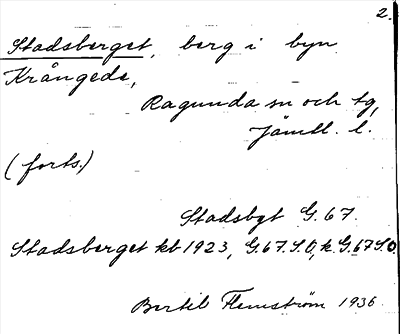 2.
Stadsberget, berg i byn
Krångede,
Ragunda sn och tg,
Jämtl. l.
(forts.)
Stadsbgt G. 67.
Stadsberget kb 1923, G. 67. S.O, k. G. 67 S.O.
Bertil Flemström 1936